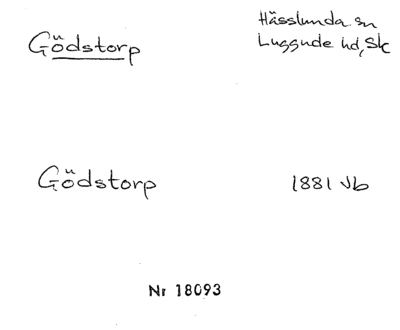 Gödstorp
Hässlunda sn
Luggude hd, Sk
Gödstorp
1881 Jb
Nr 18093